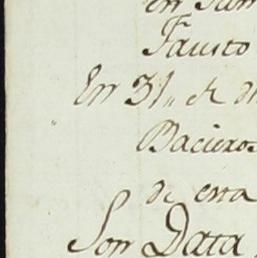 en
Fausto
En 31,, de
Bacieros
de esta
Son Data